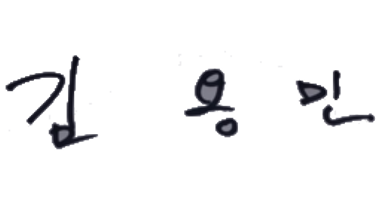 김 용 민